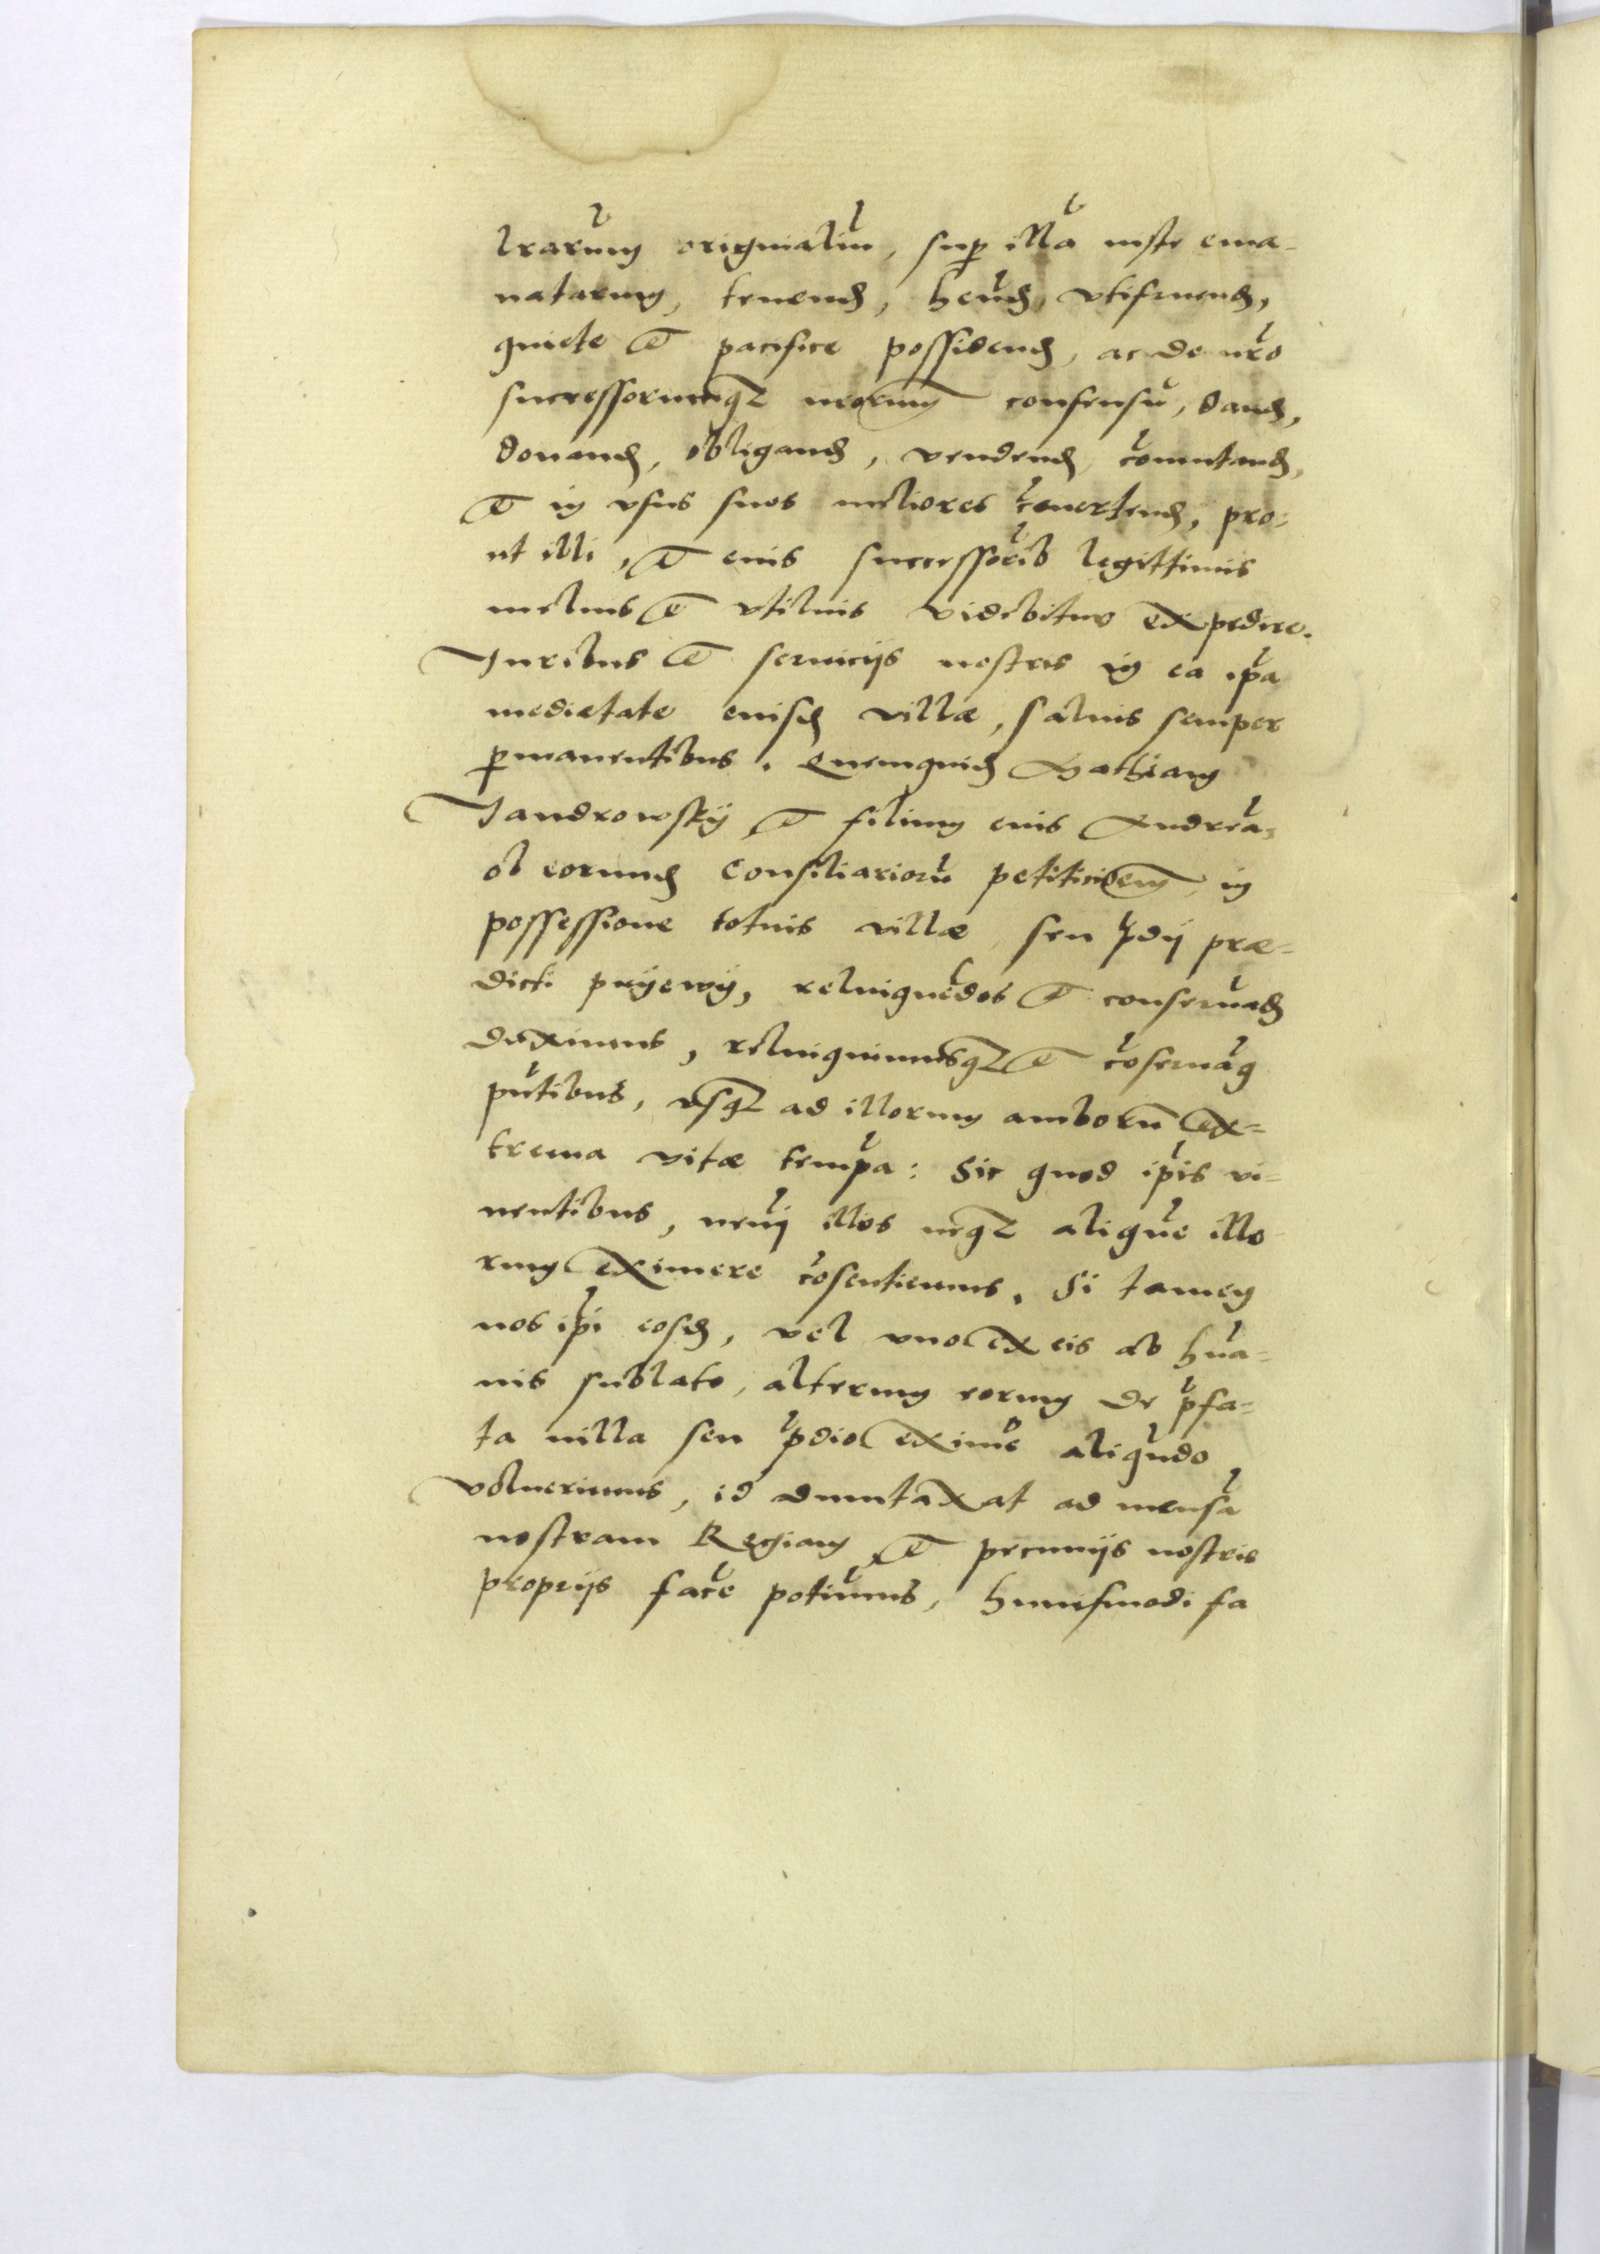 lrarum originaliu, sup illa iuste ema-
natarum, tenend, hend, vtifruend,
quiete et pacifice possidend, ac de nro
successorumq nrorum consensu, dand,
donand, obligand, vendend, comutand,
et in vsus suos meliores couertend, pro-
ut illi, et eius successorib legittimis
melius et vtilius videbitur expedire.
Iuribus et seruicijs nostris in ea ipa
medietate eiusd villæ, saluis semper
pmanentibus. Quemquid Mathiam
Jandrowsky et filium eius Andrea,
ob eorund Consiliarioru petitionem in
possessione totius villæ seu pdij præ-
dicti pnyewy, relinquedos et conseruad
duximus, relinquimusq et coseruam
pntibus, vsq ad illorum amboru ex-
trema vitæ tempa: Sic quod ipis vi-
uentibus, nemi illos neq alique illo
rum eximere cosentiemus. Si tamen
nos ipi eosd, vel vno ex eis ab hua-
nis sublato, alterum eorum de pfa-
ta villa seu pdio exime aliqudo
voluerimus, id dumtaxat ad mensa
nostram Regiam et pecunijs nostris
proprijs face potiumus, huiusmodi fa